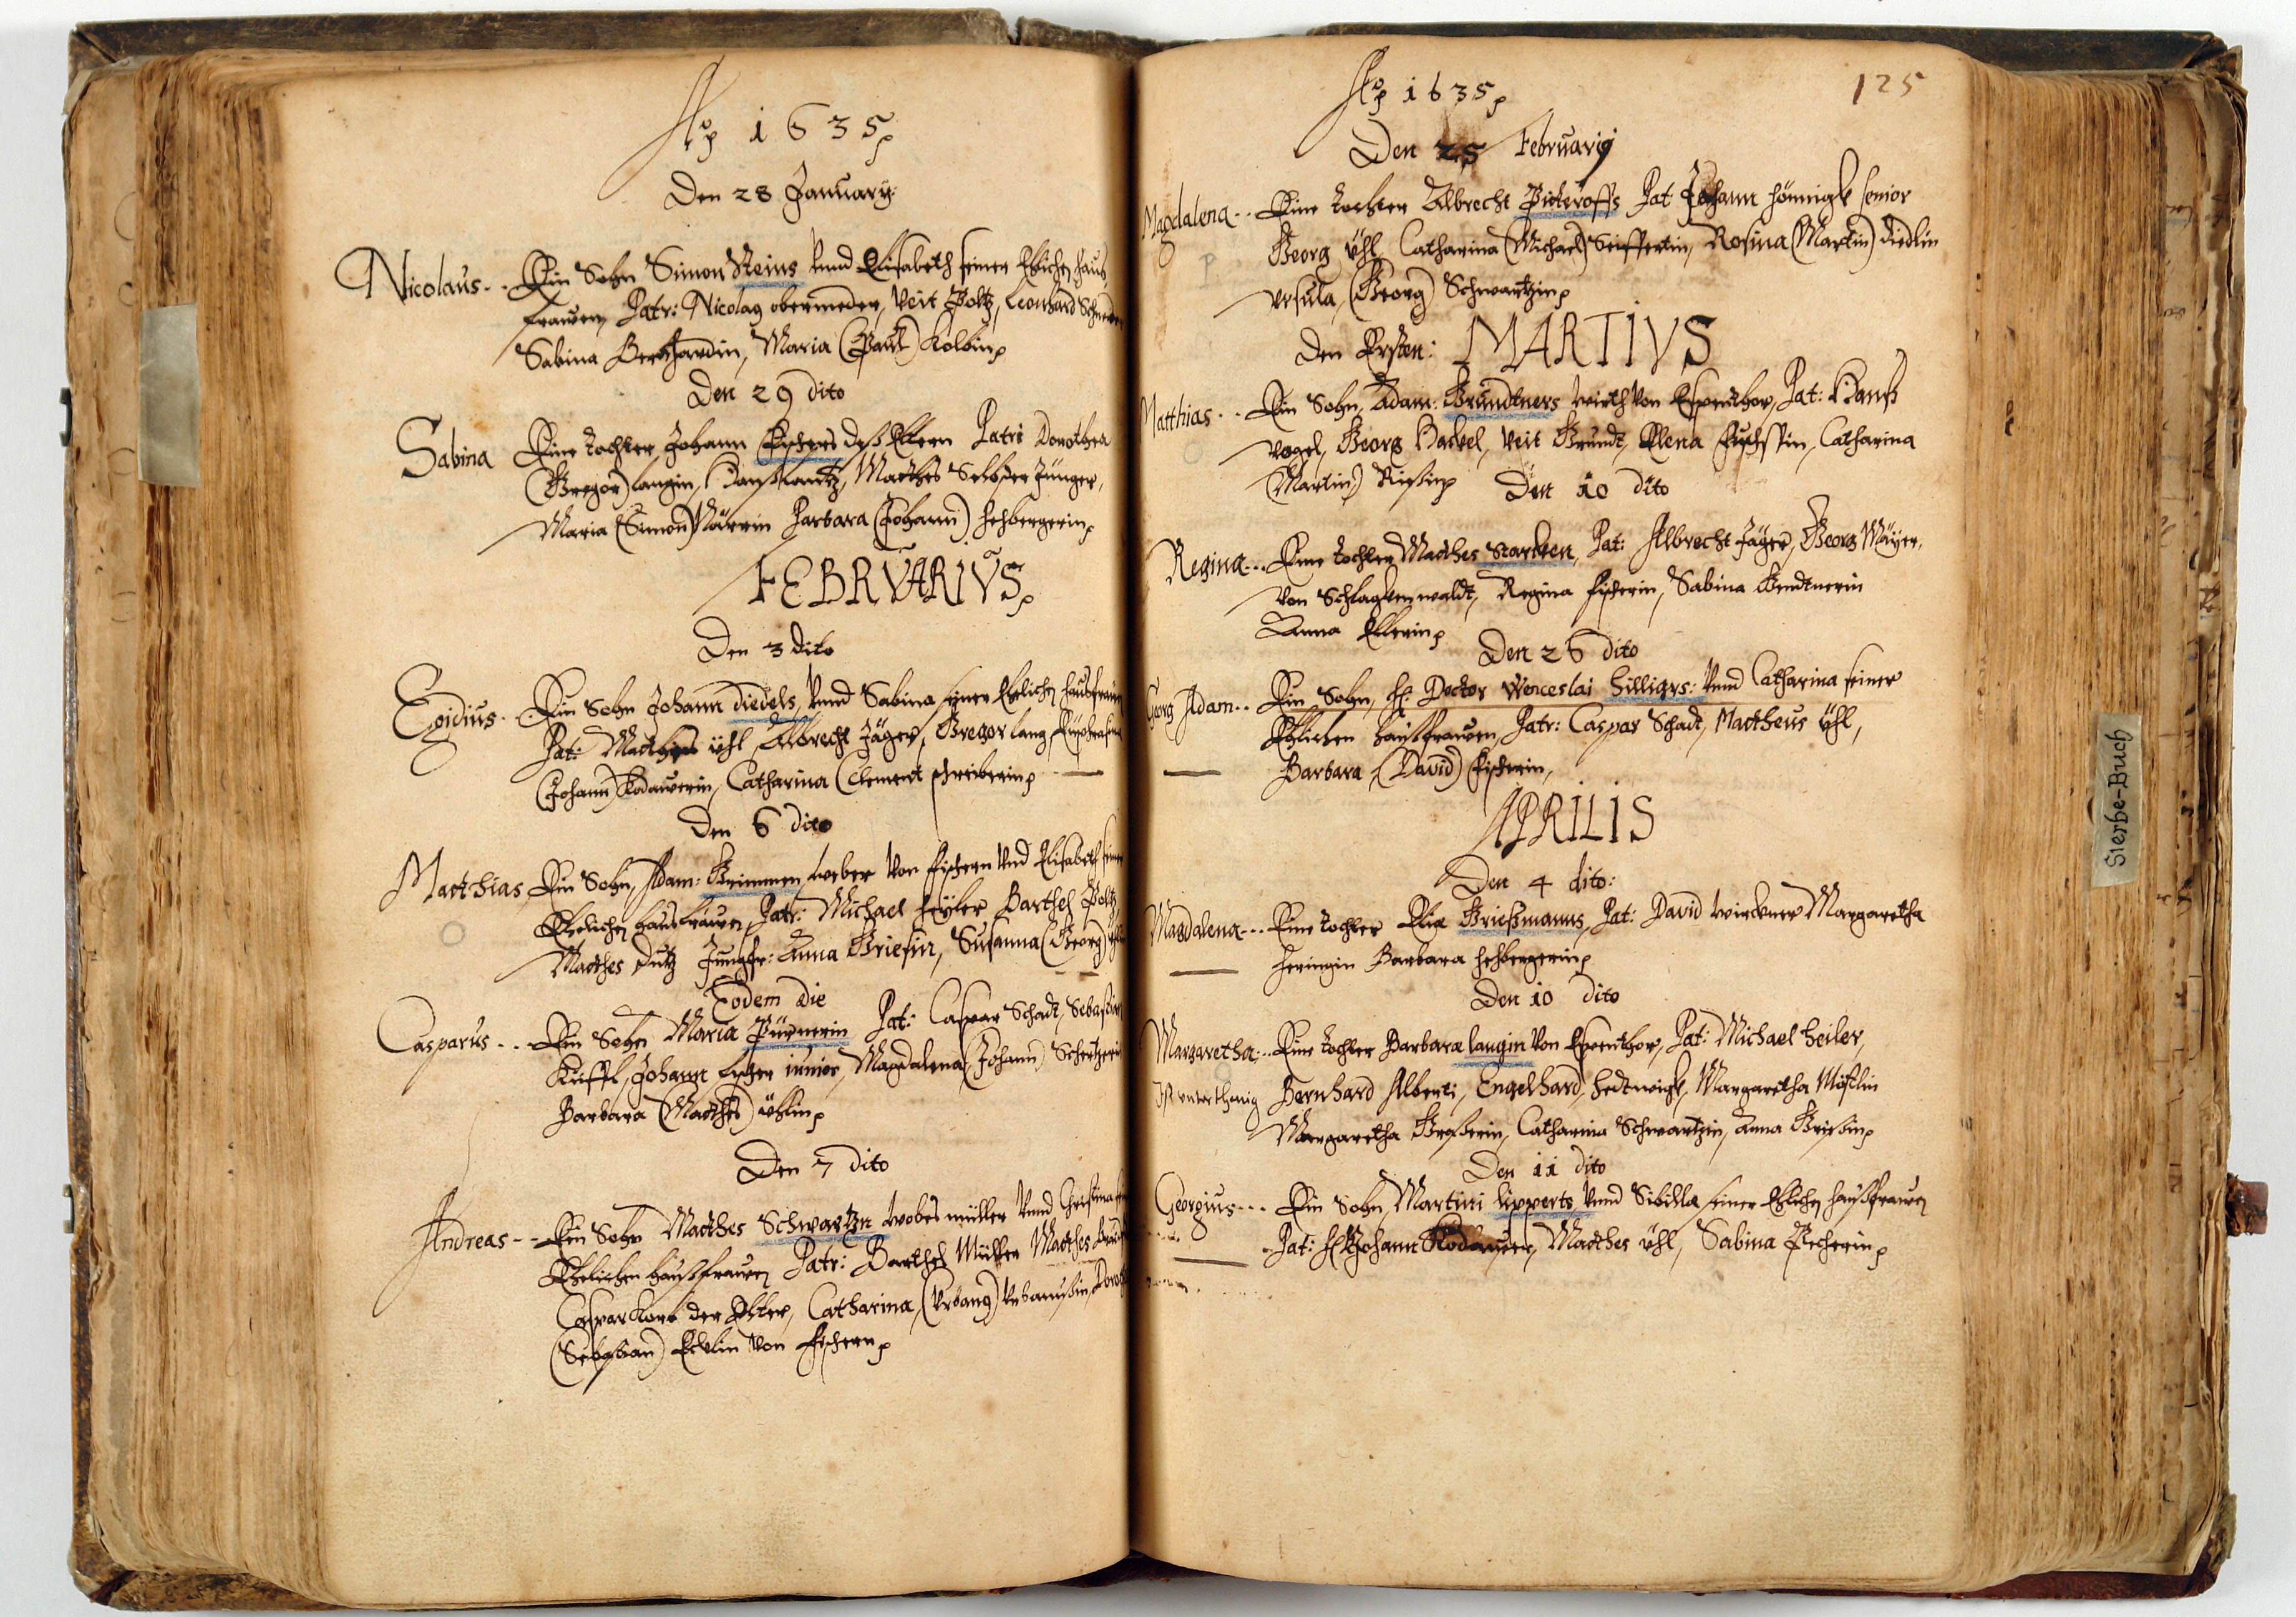 Ao 1635
Den 28 January
Nicolaus - - Ein Sohn Simon Steins vnnd Elisabeth seiner Ehlichen haus
frawen, Patr: Nicolaus obermeder, Veit Poltz, Leonhard
Sabina Bernhardin, Maria (Paul) Kolbin
Den 29 dito
Sabina Eine tochter Johann Fischers deß Eltern Patri Dorothea
(Gregor) Langin, Hanß Lantz, Matthes der Jünger,
Maria (Simon) Barbara (Johann) Hehbergerin
FEBRVARIVS
Den 3 dito
Egidius - Ein Sohn Johann Diedels, vnnd Sabina seiner Ehelichen hausfrawen
Pat: Matthes ühl, Albrecht Jäger, Gregor Lang,
(Johann) Kodauerin, Catharina (Clement schreiberin
Den 6 dito
Matthias Ein Sohn, Adam: Grimmen, weber von Fischern vnd Elisabeth seiner
Ehelichen hausfrauen, Patr: Michael Heyler Barthel Poltz
Matthes Jungfr: Anna Griesin, Susanna (Georg)
Eodem die
Casparus - - Ein Sohn Maria Pürnerin Pat: Caspar Schadt, Sebastian
Johann junior, Magdalena (Johann)
Barbara (Matthes) ühlin
Den 7 dito
Andreas - - Ein Sohn Matthes Schwartzn müller vnnd Christina
Ehelichen haußfrawen Patr: Barthel Müller Matthes
Caspar Korb der Elter, Catharina, (Vrbanus)
(Sebastian) von Fischern
125
Ao 1635
Den 25 Februarij
Magdalena - - Eine tochter Albrecht Pickeroffs Pat Johann Hönnigk senior
Georg ühl, Catharina (Michael) Seiffertin, Rosina (Martin) Diedlin
Vrsula, (Georg) Schwartzin
Den Ersten: MARTIVS
Matthias - - Ein Sohn, Adam: Gründtners wirth von Espenthor, Pat: Hanß
Vogel, Georg Hackel, Veit Gründt, Elena Catharina
(Martin) Den 10 dito
Regina - - - Eine tochter Matthes Starcken, Pat: Albrecht Jäger, Georg Mäyer,
von Schlagkenwaldt, Regina Fischerin, Sabina
Anna Ellerin
Den 26 dito
Georg Adam - - Ein Sohn, H: Doctor Wenceslai Hilligrs: vnnd Catharina seiner
Ehlichen haußfrawen, Patr: Caspar Schadt, Mattheus ühl,
Barbara, (David) Fischerin,
APRILIS
Den 4 dito:
Magdalena - - - Eine tochter Elia Grießmanns, Pat: David wirckner Margaretha
Heringin Barbara Hehbergerin
Den 10 dito
Margaretha - - Eine tochter Barbara Langin von Espenthor, Pat: Michael Heiler,
Ist vnterthenig Bernhard Alberti, Engelhard, Hedtwigk, Margaretha Möstlin
Margaretha Catharina Schwartzin, Anna Grießin
Den 11 dito
Georgius - - - Ein Sohn Martini Lipperts vnnd Sibilla seiner Ehlichen haußfrawen
Pat: H Johann Kodauer, Matthes ühl, Sabina
Sterbe-Buch